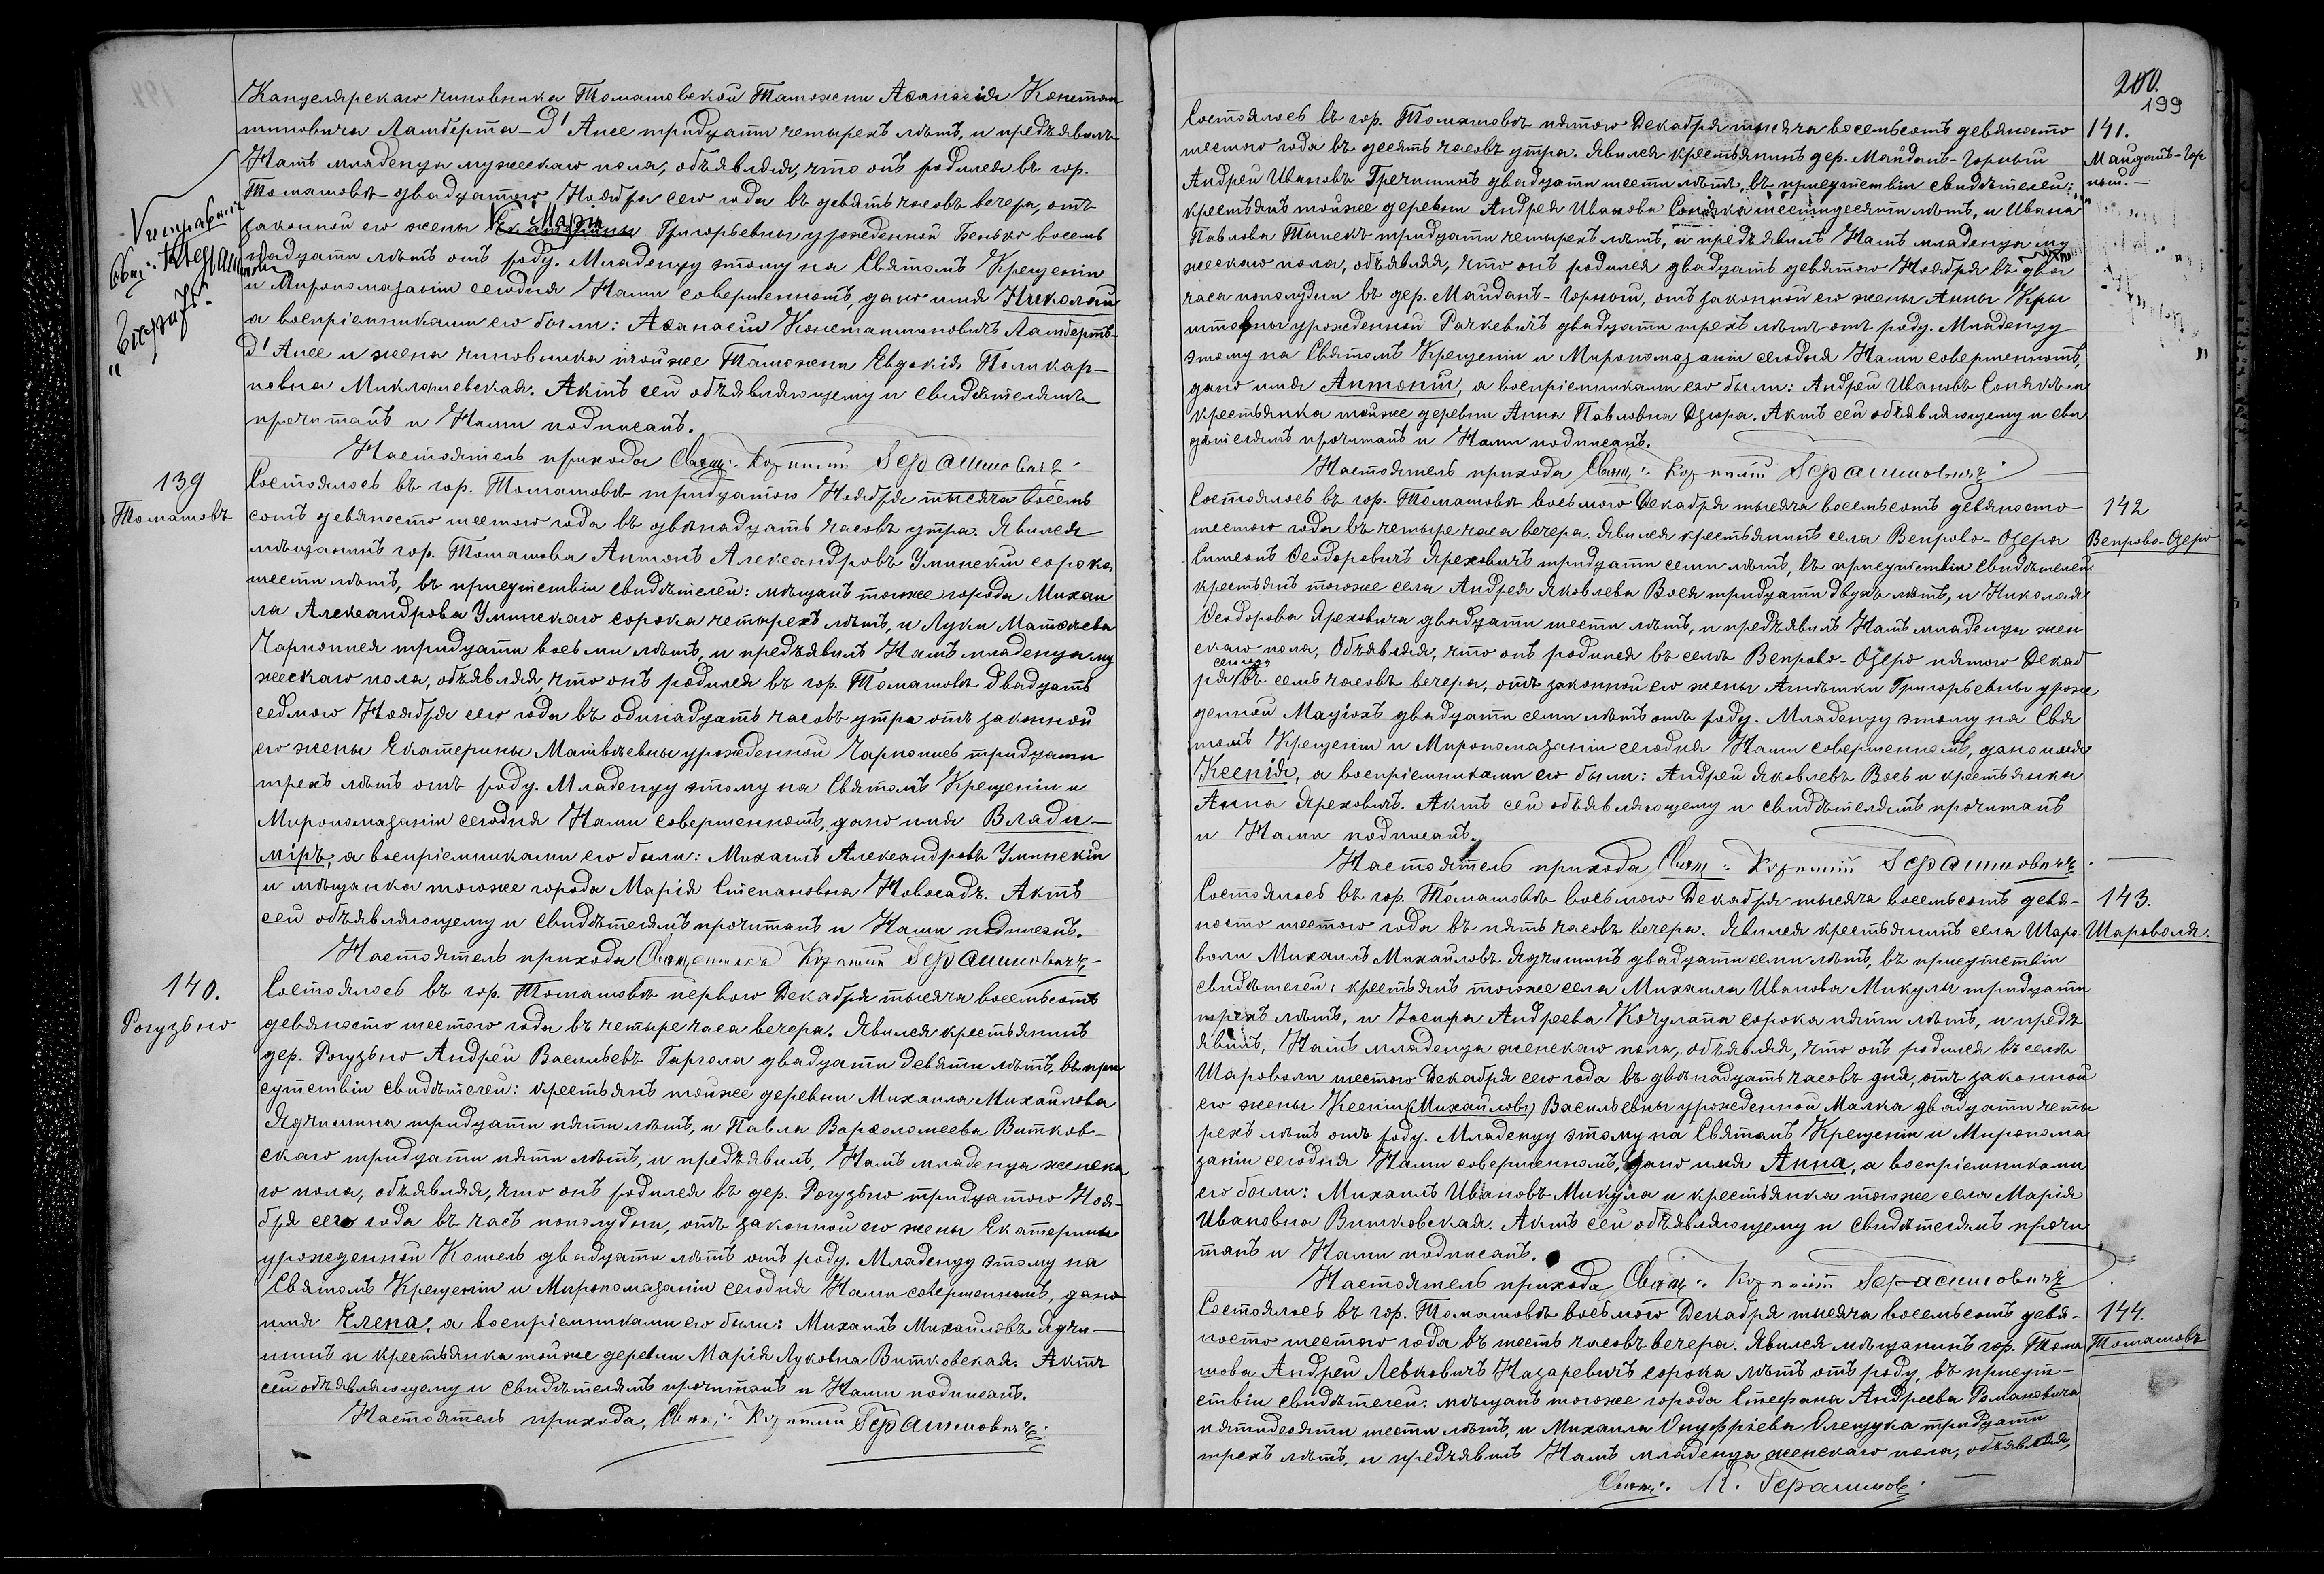 Канцелярскаго чиновника Томашовской Таможни Аѳанасія Констан
тиновича Ламберта-д'Ансе тридцати четырехъ лѣтъ, и предъявилъ
Намъ младенца мужескаго пола, объявляя, что онъ родился въ гор.
Томашовѣ двадцатаго Ноября сего года въ девять часовъ вечера, отъ
законной его жены Екатерины Маріи Григорьевны урожденной Бенько восемь
надцати лѣтъ отъ роду. Младенцу этому на Святомъ Крещеніи
и Миропомазаніи сегодня Нами совершенномъ, дано имя Николай
а воспріемниками его были: Аѳанасій Константиновичъ Ламбертъ-
д'Ансе и жена чиновника тойже Таможни Евдокія Поликар-
повна Миклашевская. Актъ сей объявляющему и свидѣтелямъ
прочитанъ и Нами подписанъ.
Настоятель прихода Свящ: Герасимовичъ
139
Томашовъ
Состоялось въ гор. Томашовѣ тридцатаго Ноября тысяча восемь
сотъ девяносто шестого года въ двѣнадцать часовъ утра. Явился
мѣщанинъ гор. Томашова Антонъ Александровъ Уминскій сорока
шести лѣтъ, въ присутствіи свидѣтелей: мѣщанъ тогоже города Михаи
ла Александрова Уминскаго сорока четырехъ лѣтъ, и Луки Матѳѣева
Чарнопися тридцати восьми лѣтъ, и предъявилъ Намъ младенца му
жескаго пола, объявляя, что онъ родился въ гор. Томашовѣ двадцать
седмого Ноября сего года въ одинадцать часовъ утра отъ законной
его жены Екатерины Матвѣевны урожденной Чарнопись тридцати
трехъ лѣтъ отъ роду. Младенцу этому на Святомъ Крещеніи и
Миропомазаніи сегодня Нами совершенномъ, дано имя Влади-
міръ, а воспріемниками его были: Михаилъ Александровъ Уминскій
и мѣщанка тогоже города Марія Степановна Новосадъ. Актъ
сей объявляющему и свидѣтелямъ прочитанъ и Нами подписанъ.
Настоятель прихода Священникъ Герасимовичъ
140.
Рогузьно
Состоялось въ гор. Томашовѣ перваго Декабря тысяча восемьсотъ
девяносто шестого года въ четыре часа вечера. Явился крестьянинъ
дер. Рогузьно Андрей Васильевъ Гаргола двадцати девяти лѣтъ, въ при
сутствіи свидѣтелей: крестьянъ тойже деревни Михаила Михайлова
Ядчишина тридцати пяти лѣтъ, и Павла Варѳоломеева Витков-
скаго тридцати пяти лѣтъ, и предъявилъ, Намъ младенца женска
го пола, объявляя, что онъ родился въ дер. Рогузьно тридцатого Ноя-
бря сего года въ часъ пополудни, отъ законной его жены Екатерины
урожденной Кошель двадцати лѣтъ отъ роду. Младенцу этому на
Святомъ Крещеніи и Миропомазаніи сегодня Нами совершенномъ, дано
имя Елена, а воспріемниками его были: Михаилъ Михайловъ Ядчи-
шинъ и крестьянка тойже деревни Марія Луковна Витковская. Актъ
сей объявляющему и свидѣтелямъ прочитанъ и Нами подписанъ.
Настоятель прихода, Свящ: Герасимовичъ
200.
199
141.
Майданъ-Гор
ный.-
Состоялось въ гор. Томашовѣ пятого Декабря тысяча восемьсотъ девяносто
шестого года въ десять часовъ утра. Явился крестьянинъ дер. Майданъ-Горный
Андрей Ивановъ Гречишинъ двадцати шести лѣтъ, въ присутствіи свидѣтелей:
крестьянъ тойже деревни Андрея Иванова Соняка шестидесяти лѣтъ, и Ивана
Павлова Тынекъ тридцати четырехъ лѣтъ, и предъявилъ Намъ младенца му
жескаго пола, объявляя, что онъ родился двадцать девятого Ноября въ два
часа пополудни въ дер. Майданъ-Горной, отъ законной его жены Анны Кры
штовны урожденной Рачкевичъ двадцати трехъ лѣтъ отъ роду. Младенцу
этому на Святомъ Крещеніи и Миропомазаніи сегодня Нами совершенномъ,
дано имя Антоній, а воспріемниками его были: Андрей Ивановъ Сонякъ и
крестьянка тойже деревни Анна Павловна Дзюра. Актъ сей объявляющему и сви
дѣтелямъ прочитанъ и Нами подписанъ.
Настоятель прихода Свящ: Герасимовичъ
142
Вепрово-Озеро
Состоялось въ гор. Томашовѣ восьмого Декабря тысяча восемьсотъ девяносто
шестого года въ четыре часа вечера. Явился крестьянинъ села Вепрово-Озера
Симеонъ Ѳеодоровичъ Яреховичъ тридцати семи лѣтъ, въ присутствіи свидѣтелей:
крестьянъ тогоже села Андрея Яковлева Вося тридцати двухъ лѣтъ, и Николая
Ѳеодорова Яреховича двадцати шести лѣтъ, и предъявилъ Намъ младенца жен
скаго пола, объявляя, что онъ родился въ селѣ Вепрово-Озеро пятого Декаб
ря сего года въ семь часовъ вечера, отъ законной его жены Агнѣшки Григорьевны урож
денной Мацюхъ двадцати семи лѣтъ отъ роду. Младенцу этому на Свя
томъ Крещеніи и Миропомазаніи сегодня Нами совершенномъ, дано имя
Ксенія, а воспріемниками его были: Андрей Яковлевъ Вось и крестьянка
Анна Яреховичъ. Актъ сей объявляющему и свидѣтелямъ прочитанъ
и Нами подписанъ.
Настоятель прихода Свящ: Герасимовичъ
143.
Шароволя.
Состоялось въ гор. Томашовѣ восьмого Декабря тысяча восемьсотъ девя-
носто шестого года въ пять часовъ вечера. Явился крестьянинъ села Шаро-
воли Михаилъ Михайловъ Ядчишинъ двадцати семи лѣтъ, въ присутствіи
свидѣтелей: крестьянъ тогоже села Михаила Иванова Микулы тридцати
трехъ лѣтъ, и Іосифа Андреева Кочулапа сорока пяти лѣтъ, и предъ
явилъ, Намъ младенца женскаго пола, объявляя, что онъ родился въ селѣ
Шароволи шестого Декабря сего года въ двѣнадцать часовъ дня, отъ законной
его жены Ксеніи (Михайловъ) Васильевны урожденной Малка двадцати четы
рехъ лѣтъ отъ роду. Младенцу этому на Святомъ Крещеніи и Миропома
заніи сегодня Нами совершенномъ, дано имя Анна, а воспріемниками
его были: Михаилъ Ивановъ Микула и крестьянка тогоже села Марія
Ивановна Витковская. Актъ сей объявляющему и свидѣтелямъ прочи
танъ и Нами подписанъ.
Настоятель прихода Свящ: Герасимовичъ
144.
Томашовъ
Состоялось въ гор. Томашовѣ восьмого Декабря тысяча восемьсотъ девя-
носто шестого года въ шесть часовъ вечера. Явился мѣщанинъ гор. Тома
шова Андрей Левковичъ Назаревичъ сорока лѣтъ отъ роду, въ присут-
ствіи свидѣтелей: мѣщанъ тогоже города Стефана Андреева Романовича
пятидесяти шести лѣтъ, и Михаила Онуфріева Олещука тридцати
трехъ лѣтъ, и предъявилъ Намъ младенца женскаго пола, объявляя,
Свящ: К. Герасимов